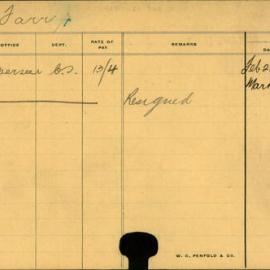 Farr
OFFICE DEPT. RATE OF PAY REMARKS
13/4 Feb 2
Mar
Resigned
W. C. PENFOLD & CO.